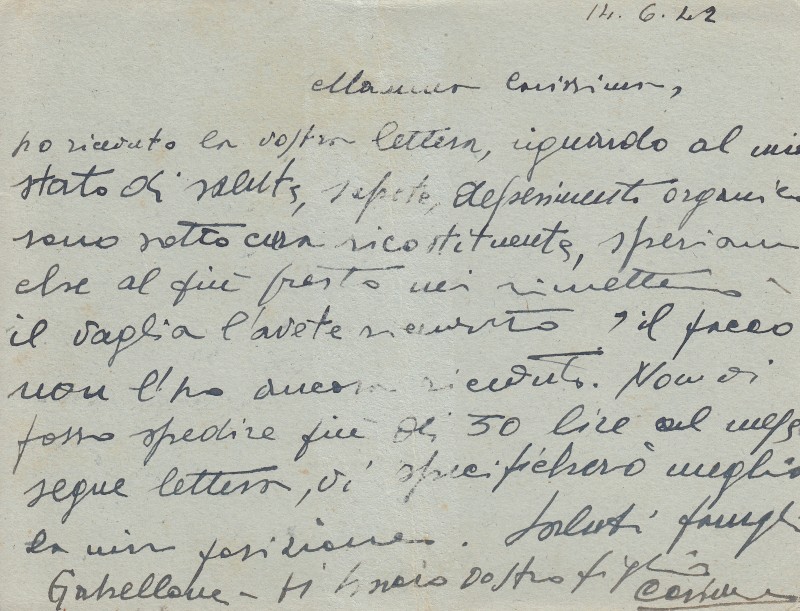 14. 6. 42
Mamma Carissima,
ho ricevuto la vostra lettera, riguardo al mio
stato di salute, sapete, deperimento organico
sono sotto cura ricostituente, speriamo
che al più presto mi rimetterò
il vaglia l'avete ricevuto, il pacco
non l'ho ancora ricevuto. Non vi
posso spedire più di 50 lire al mese
segue lettera, vi specificherò meglio
la mia posizione. Saluti famiglia
Gabellone - vi bacio vostro figlio